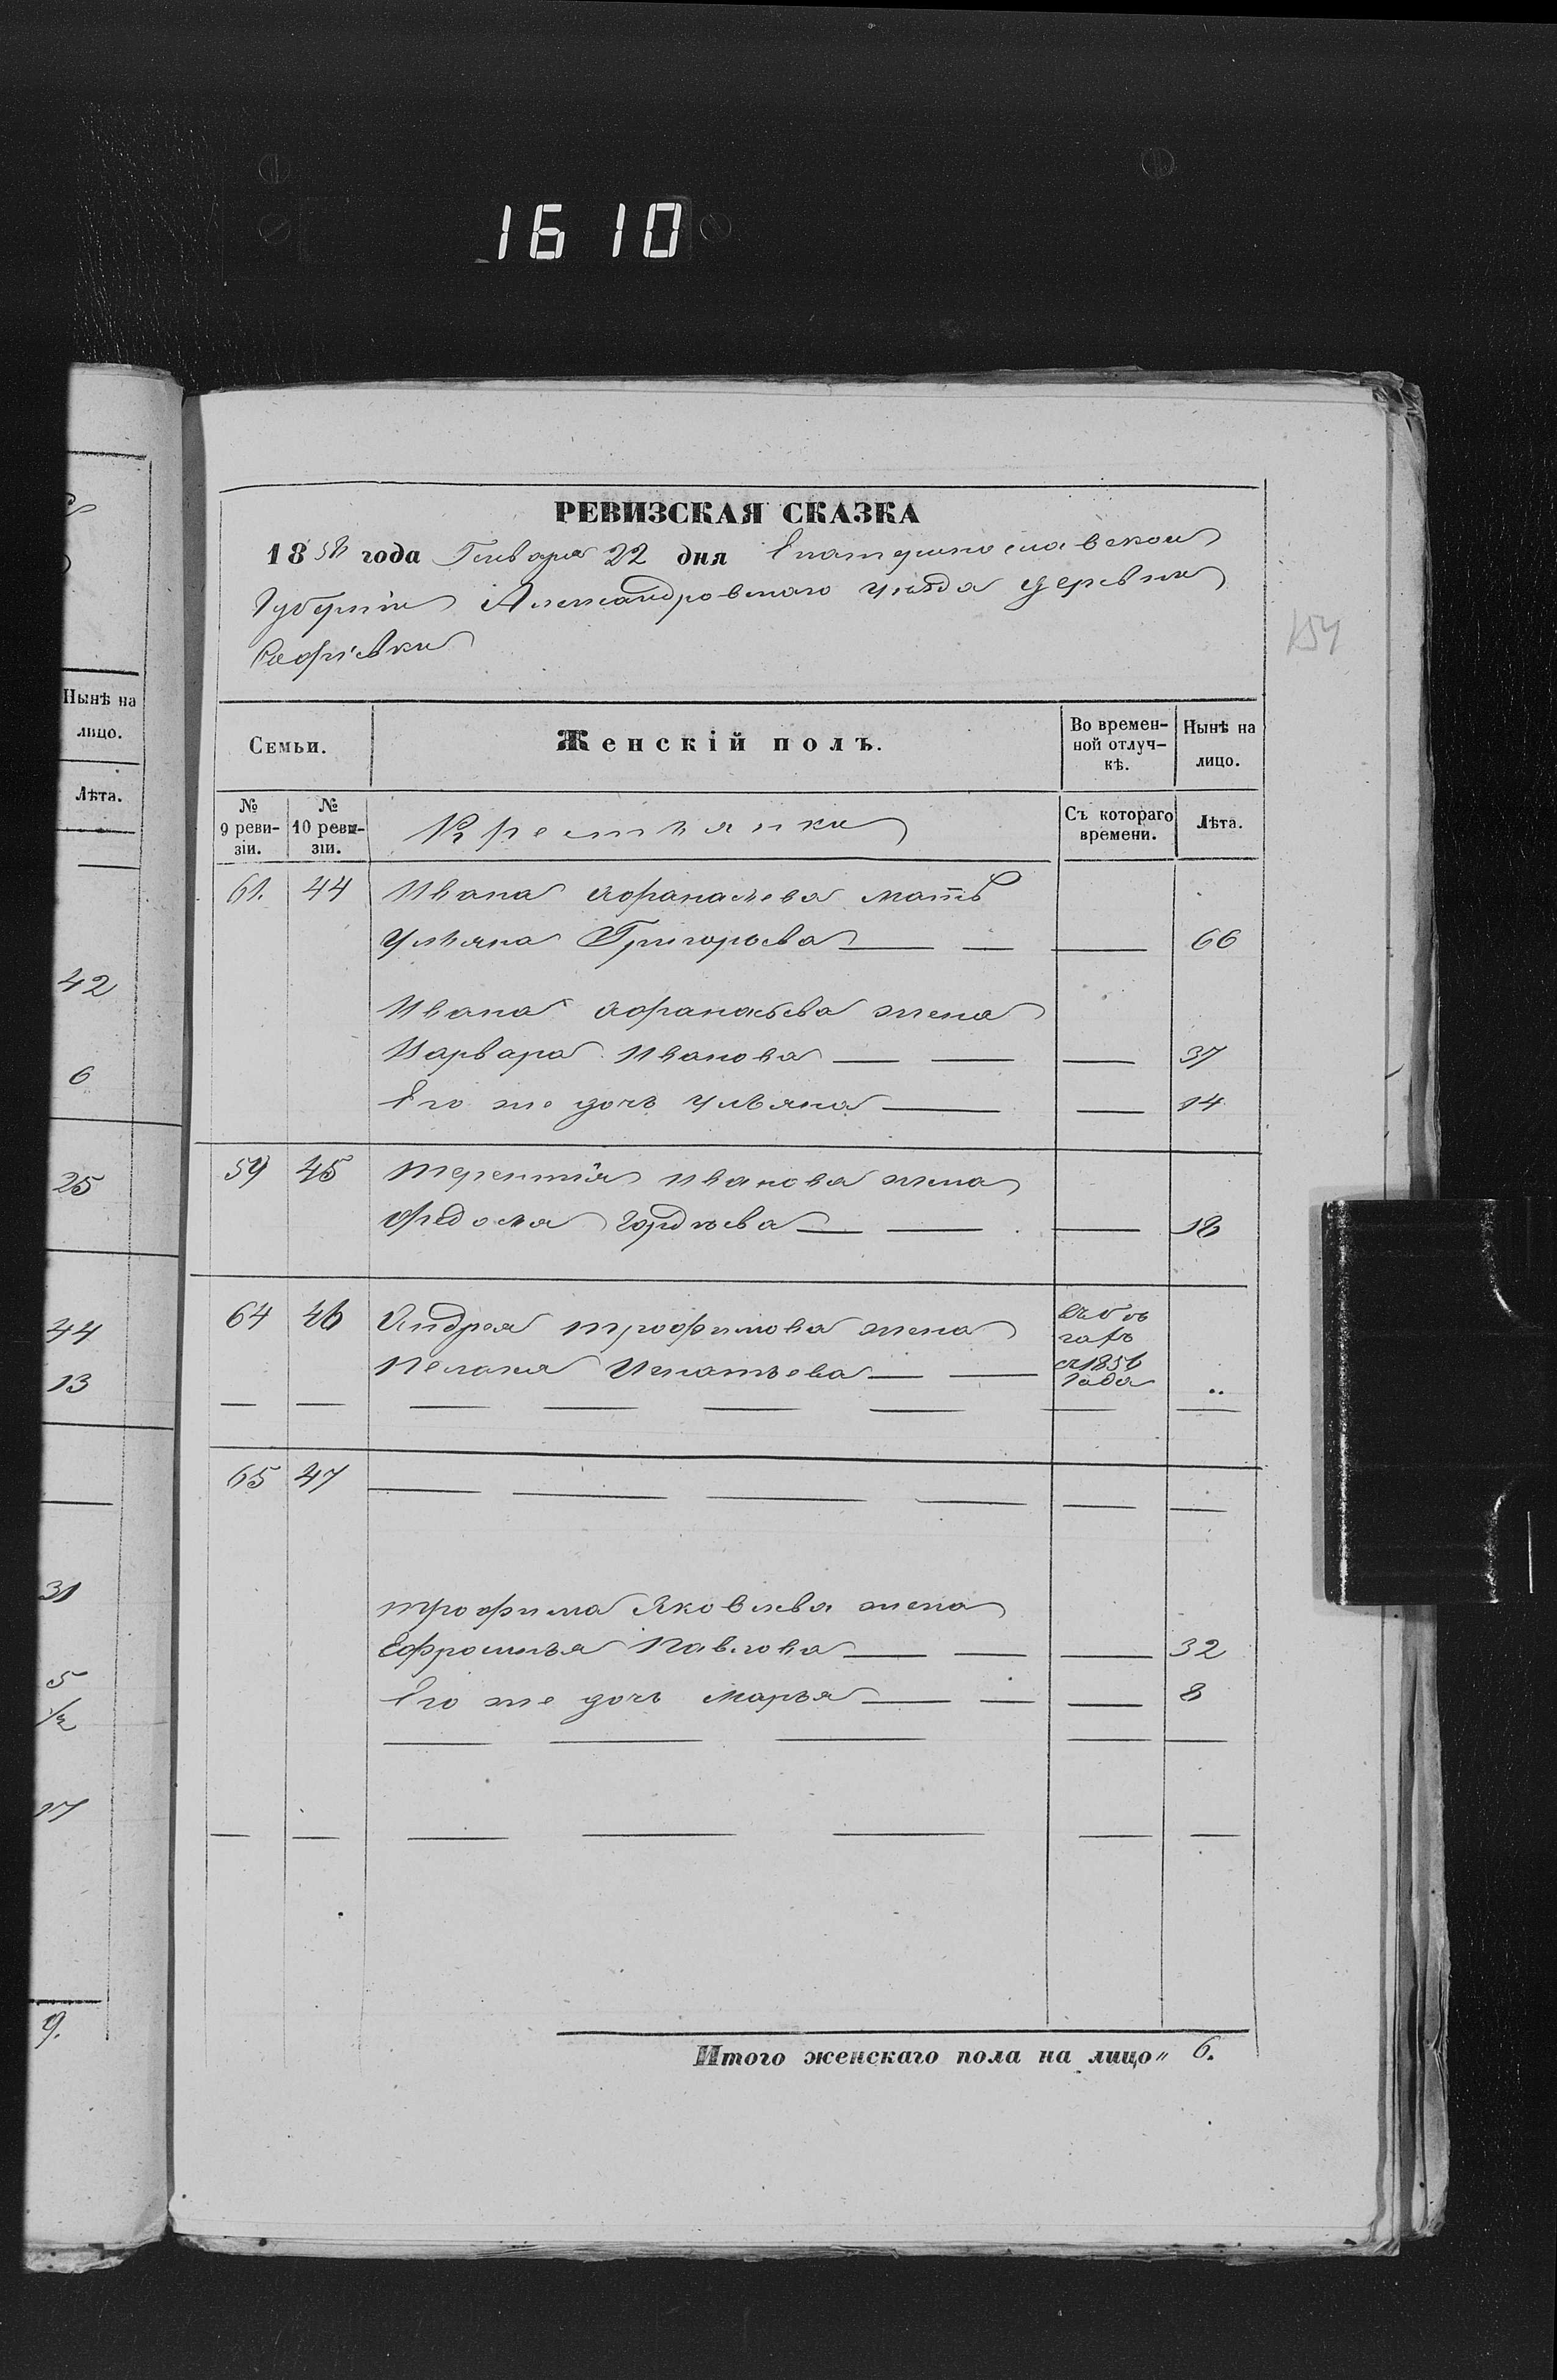 1610
Нынѣ на
лицо.
Лѣта.
42
6
25
44
13
31
5
1/2
17
9.
РЕВИЗСКАЯ СКАЗКА
1858 года Генваря 22 дня Екатеринославской
Губерніи Александровскаго уѣзда деревни
Софіевки
154
Семьи.
Женскій полъ.
Во времен-
ной отлуч-
кѣ.
Нынѣ на
лицо.
№
9 реви-
зіи.
№
10 реви-
зіи.
Крестьянки
Съ котораго
времени.
Лѣта.
61. 44 Ивана Афанасьева мать
Ульяна Григорьева — — — 66
Ивана Афанасьева жена
Варвара Иванова — — — 37
Его же дочь Ульяна — — 14
59 45 Терентія Иванова жена
Федосья Гордѣева — — — 18
64 46 Андрея Трофимова жена
Пелагея Игнатьева — —
въ бѣ
гахъ
съ 1856
Года
„
65 47 — — — — — —
Трофима Яковлева жена
Ефросинья Павлова — — — 32
Его же дочь Марья — — — 8
Итого женскаго пола на лицо „ 6.